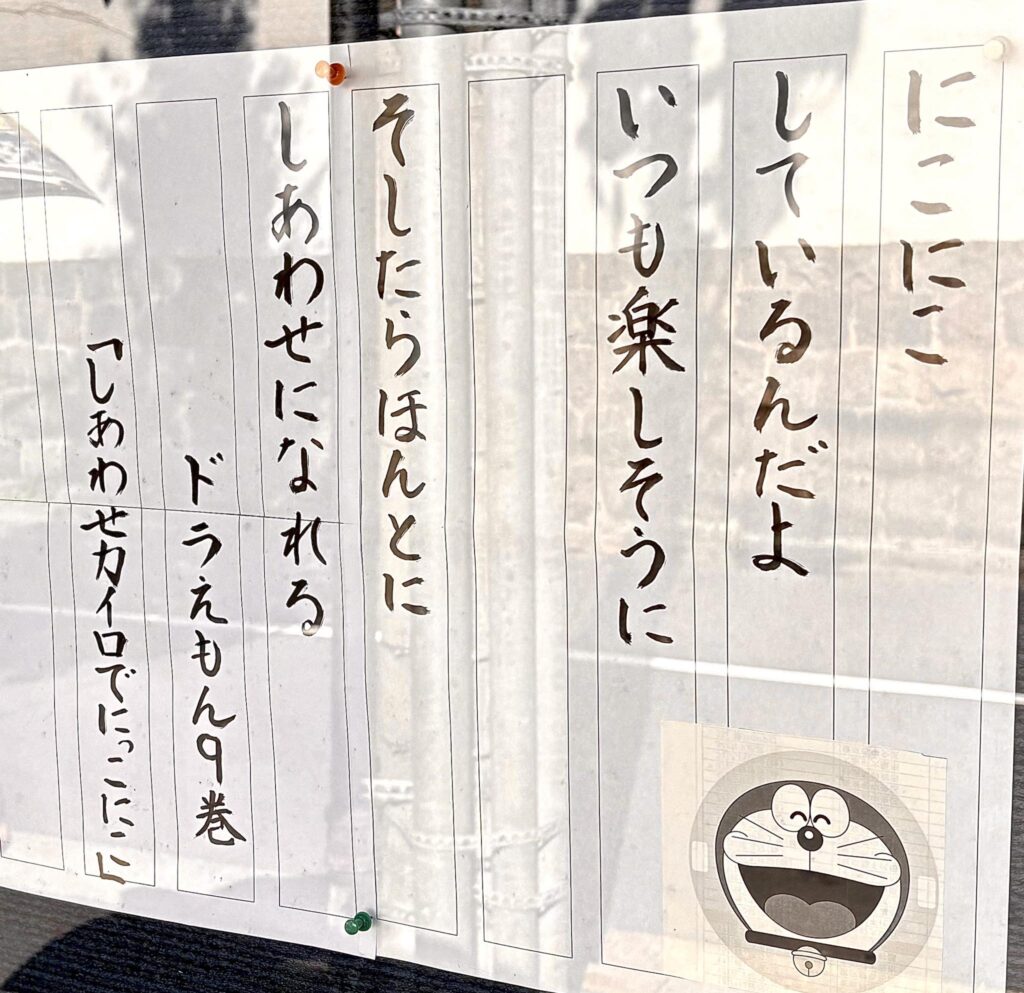 にこにこ
しているんだよ
いつも楽しそうに
そしたらほんとに
しあわせになれる
ドラえもん9巻
「しあわせカイロでにっこにこ」